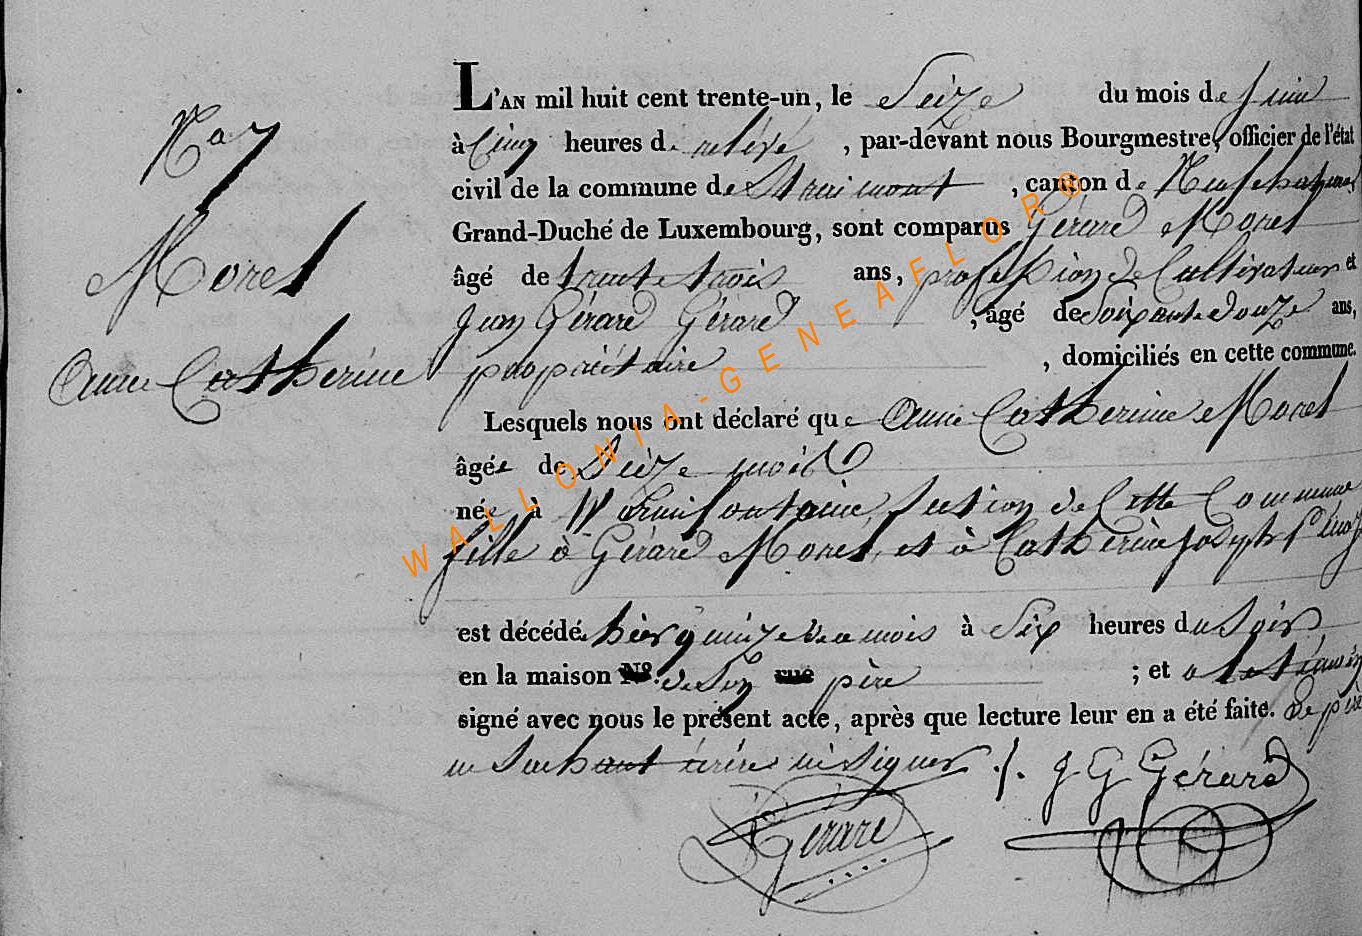 No 7
Morel
Anne Catherine
L'AN mil huit cent trente-un, le Seize du mois de Juin
à Cinq heures de relevé, par-devant nous Bourgmestre, officier de l'état
civil de la commune de Straimont, canton de Neufchateau
Grand-Duché de Luxembourg, sont comparus Gérard Morel
âgé de trente trois ans, profession de Cultivateur et
Jean Gérard Gérard, âgé de Soixante douze ans,
propriétaire, domiciliés en cette commune.
Lesquels nous ont déclaré que Anne Catherine Morel
âgée de Seize mois
née à Warmifontaine, Section de Cette Commune
fille à Gérard Morel, et à Catherine Joseph
est décédée hier quinze de ce mois à Six heures du Soir
en la maison No. de Son rue père ; et a le témoin
signé avec nous le présent acte, après que lecture leur en a été faite. Le père
ne Sachant écrire ni Signer ./.
J G Gérard
Gérard
WALLONIA-GENEAFLORO